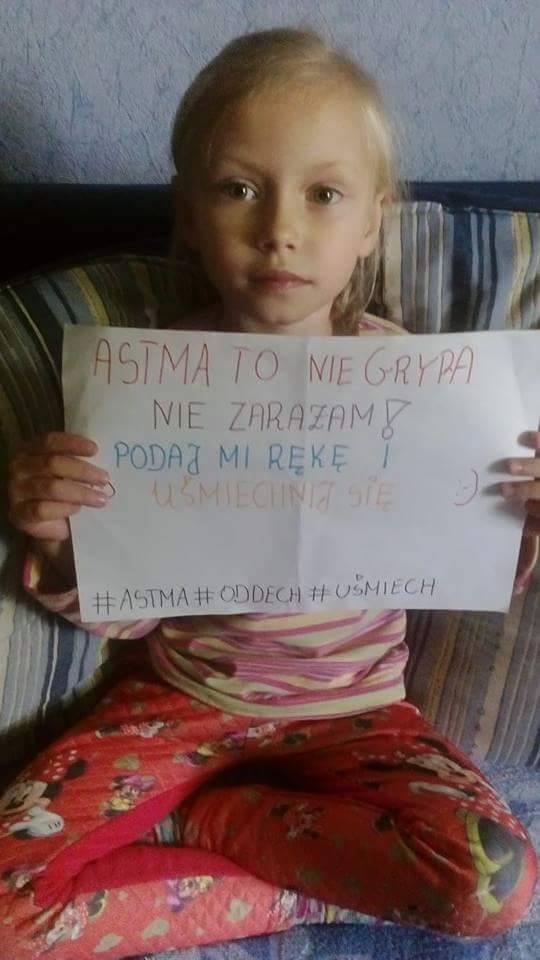 ASTMA TO NIE GRYPA
NIE ZARAŻAM!
PODAJ MI RĘKĘ I
UŚMIECHNIJ SIĘ :-)
#ASTMA#ODDECH#UŚMIECH